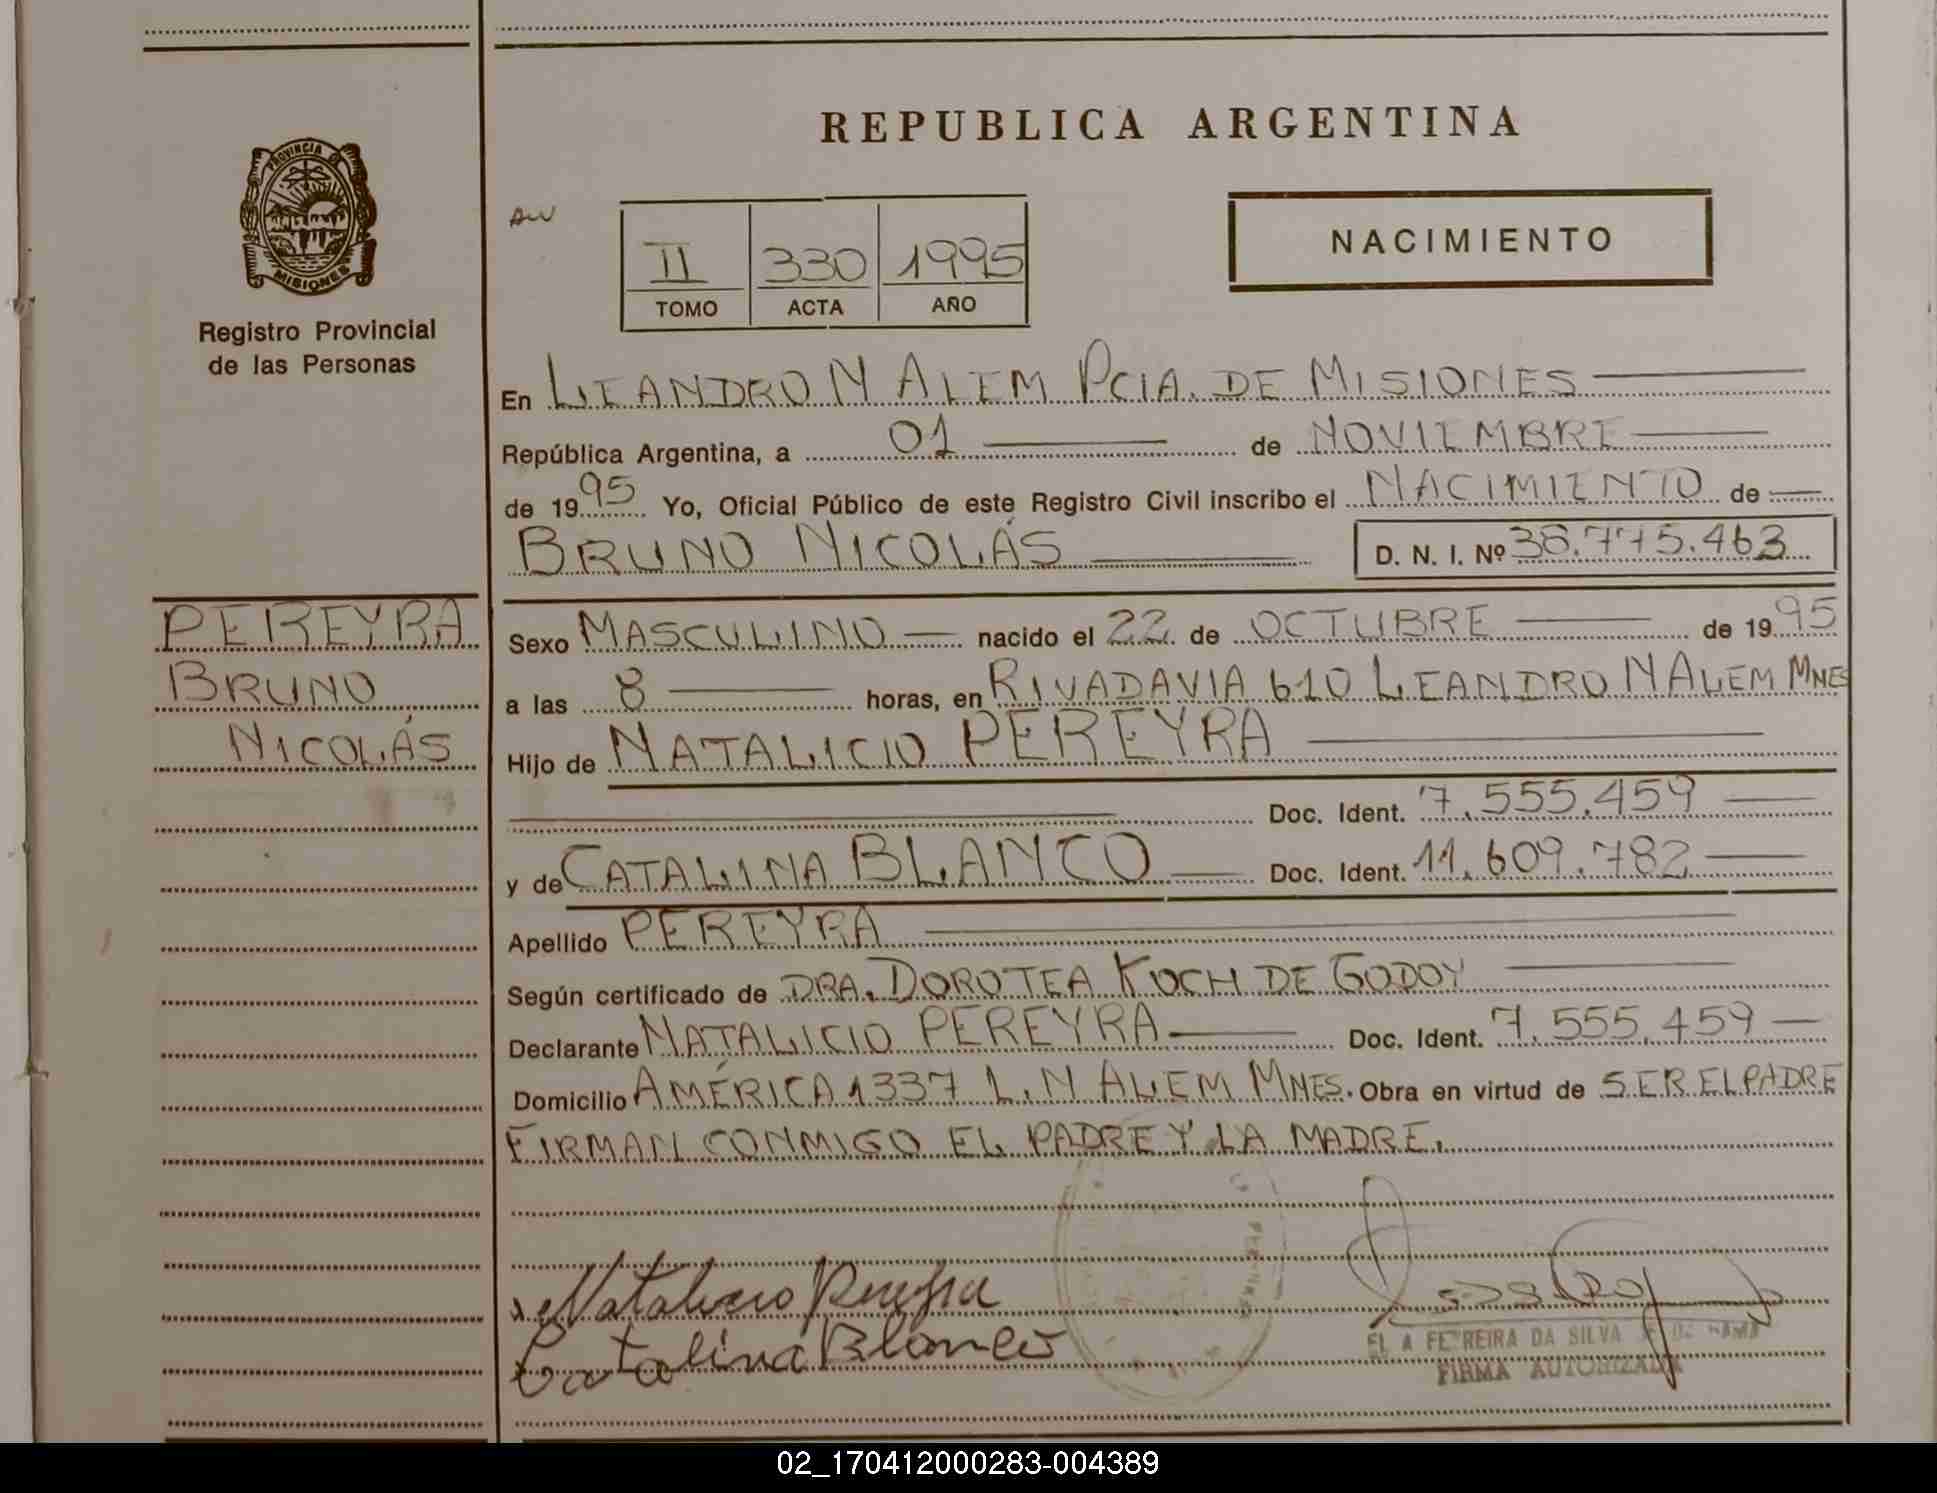 REPUBLICA ARGENTINA
PROVINCIA DE
MISIONES
Registro Provincial
de las Personas
II 330 1995
TOMO ACTA AÑO
NACIMIENTO
En LEANDRO N ALEM PCIA. DE MISIONES
República Argentina, a 01 de NOVIEMBRE
de 1995 Yo, Oficial Público de este Registro Civil inscribo el NACIMIENTO de
BRUNO NICOLÁS D. N. I. Nº 38.775.463
PEREYRA
BRUNO
NICOLÁS
Sexo MASCULINO nacido el 22 de OCTUBRE de 1995
a las 8 horas, en RIVADAVIA 610 LEANDRO N ALEM MNES
Hijo de NATALICIO PEREYRA
Doc. Ident. 7.555.459
y de CATALINA BLANCO Doc. Ident. 11.609.782
Apellido PEREYRA
Según certificado de DRA. DOROTEA KOCH DE GODOY
Declarante NATALICIO PEREYRA Doc. Ident. 7.555.459
Domicilio AMÉRICA 1337 L.N ALEM MNES. Obra en virtud de SER EL PADRE
FIRMAN CONMIGO EL PADRE Y LA MADRE.
Natalicio Pereyra
Catalina Blanco
FERREIRA DA SILVA
FIRMA AUTORIZADA
02_170412000283-004389